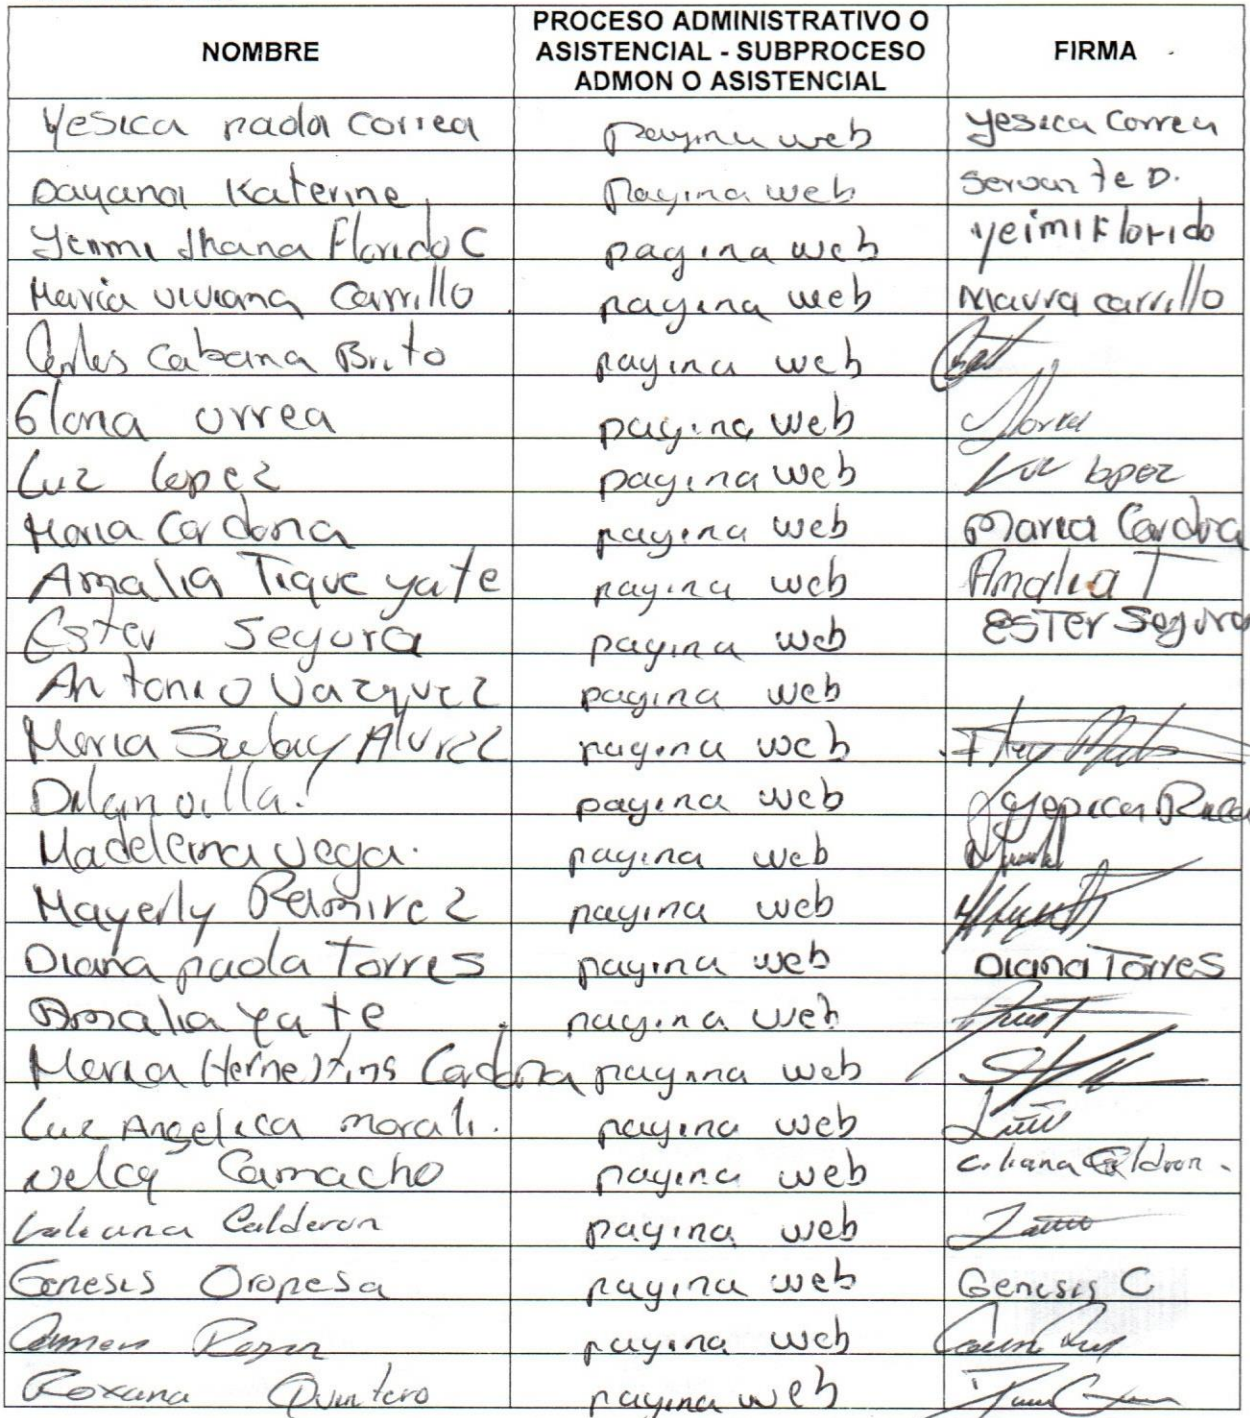 NOMBRE PROCESO ADMINISTRATIVO O ASISTENCIAL - SUBPROCESO ADMON O ASISTENCIAL FIRMA
Yesica paola Correa pagina web yesica Correa
Dayana Katerine pagina web D.
Yeimi Jhana Florido C pagina web yeimi Florido
Maria Viviana Carrillo pagina web carrillo
Carlos Cabana Brito pagina web
Gloria urrea pagina web
Luz Lopez pagina web Luz lopez
Maria Cardona pagina web Maria Cardona
Amalia Tique yate pagina web Amalia T
Ester Segura pagina web ESTer Segura
Antonio Vazquez pagina web
Maria pagina web
Dilan villa. pagina web
Madeleina vega. pagina web
Mayerly Ramirez pagina web
Diana paola Torres pagina web Diana Torres
Amalia yate pagina web
Maria Cardona pagina web
Luz Angelica morali. pagina web
Nelcy Camacho pagina web Calderon.
Calderon pagina web
Genesis Oropesa pagina web Genesis C
Carmen pagina web
Roxana Quintero pagina web